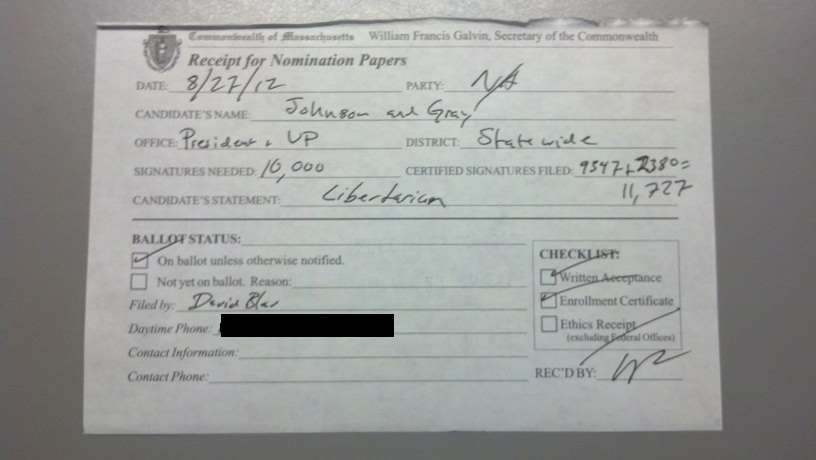 Commonwealth of Massachusetts William Francis Galvin, Secretary of the Commonwealth
Receipt for Nomination Papers
DATE: 8/27/12 PARTY: NA
CANDIDATE'S NAME: Johnson and Gray
OFFICE: President + VP DISTRICT: Statewide
SIGNATURES NEEDED: 10,000 CERTIFIED SIGNATURES FILED: 9347+2380=
11,727
CANDIDATE'S STATEMENT: Libertarian
BALLOT STATUS:
On ballot unless otherwise notified.
Not yet on ballot. Reason:
Filed by: David Blau
Daytime Phone:
Contact Information:
Contact Phone:
CHECKLIST:
Written Acceptance
Enrollment Certificate
Ethics Receipt
(excluding Federal Offices)
REC'D BY: